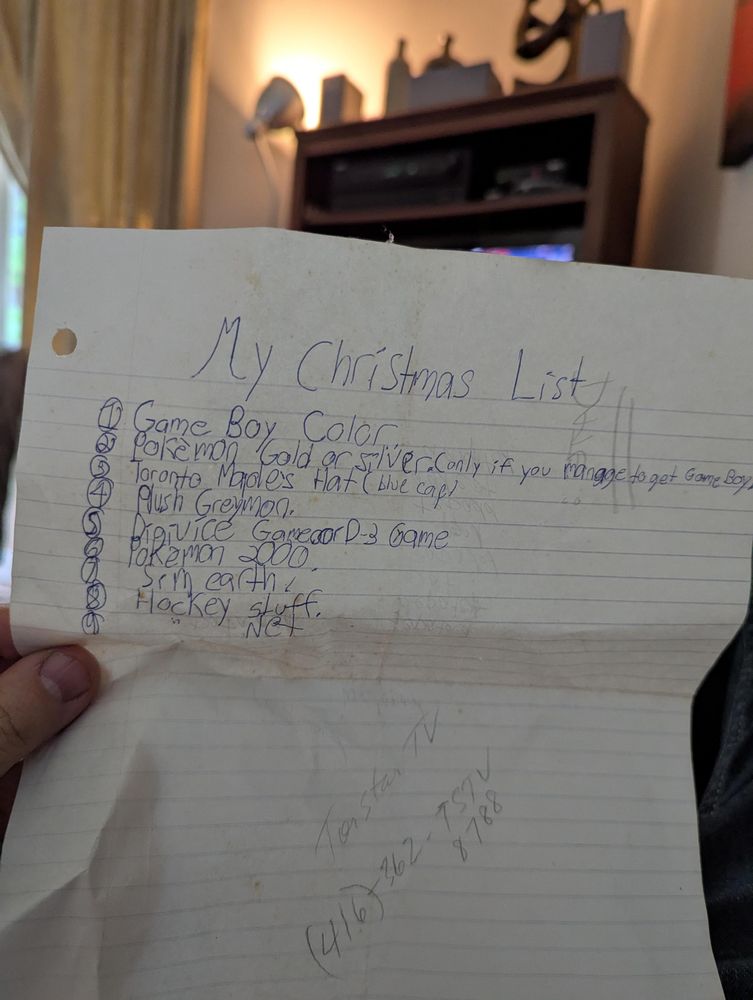 My Christmas List
① Game Boy Color
② Pokèmon Gold or silver.(only if you manage to get Game Boy)
③ Toronto Maple's Hat (blue cap)
④ Plush Greymon.
⑤ Digivice Game or D-3 Game
⑥ Pokèmon 2000
⑦ Sim earth.
⑧ Hockey stuff.
⑨ " Net
Torstar TV
(416)-362-TSTV
8788